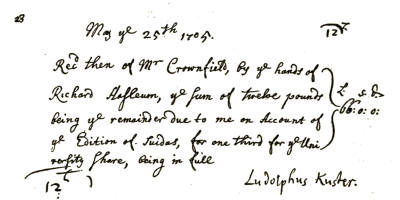 23
May ye 25th 1705.
Recd then of Mr Crownfield, by ye hands of
Richard ye sum of twelve pounds
being ye remainder due to me on Account of
ye Edition of Suidas, for one third for ye Uni
versity share, being in full
£ s. d.
66: 0: 0:
Ludolphus Kuster.
12
12